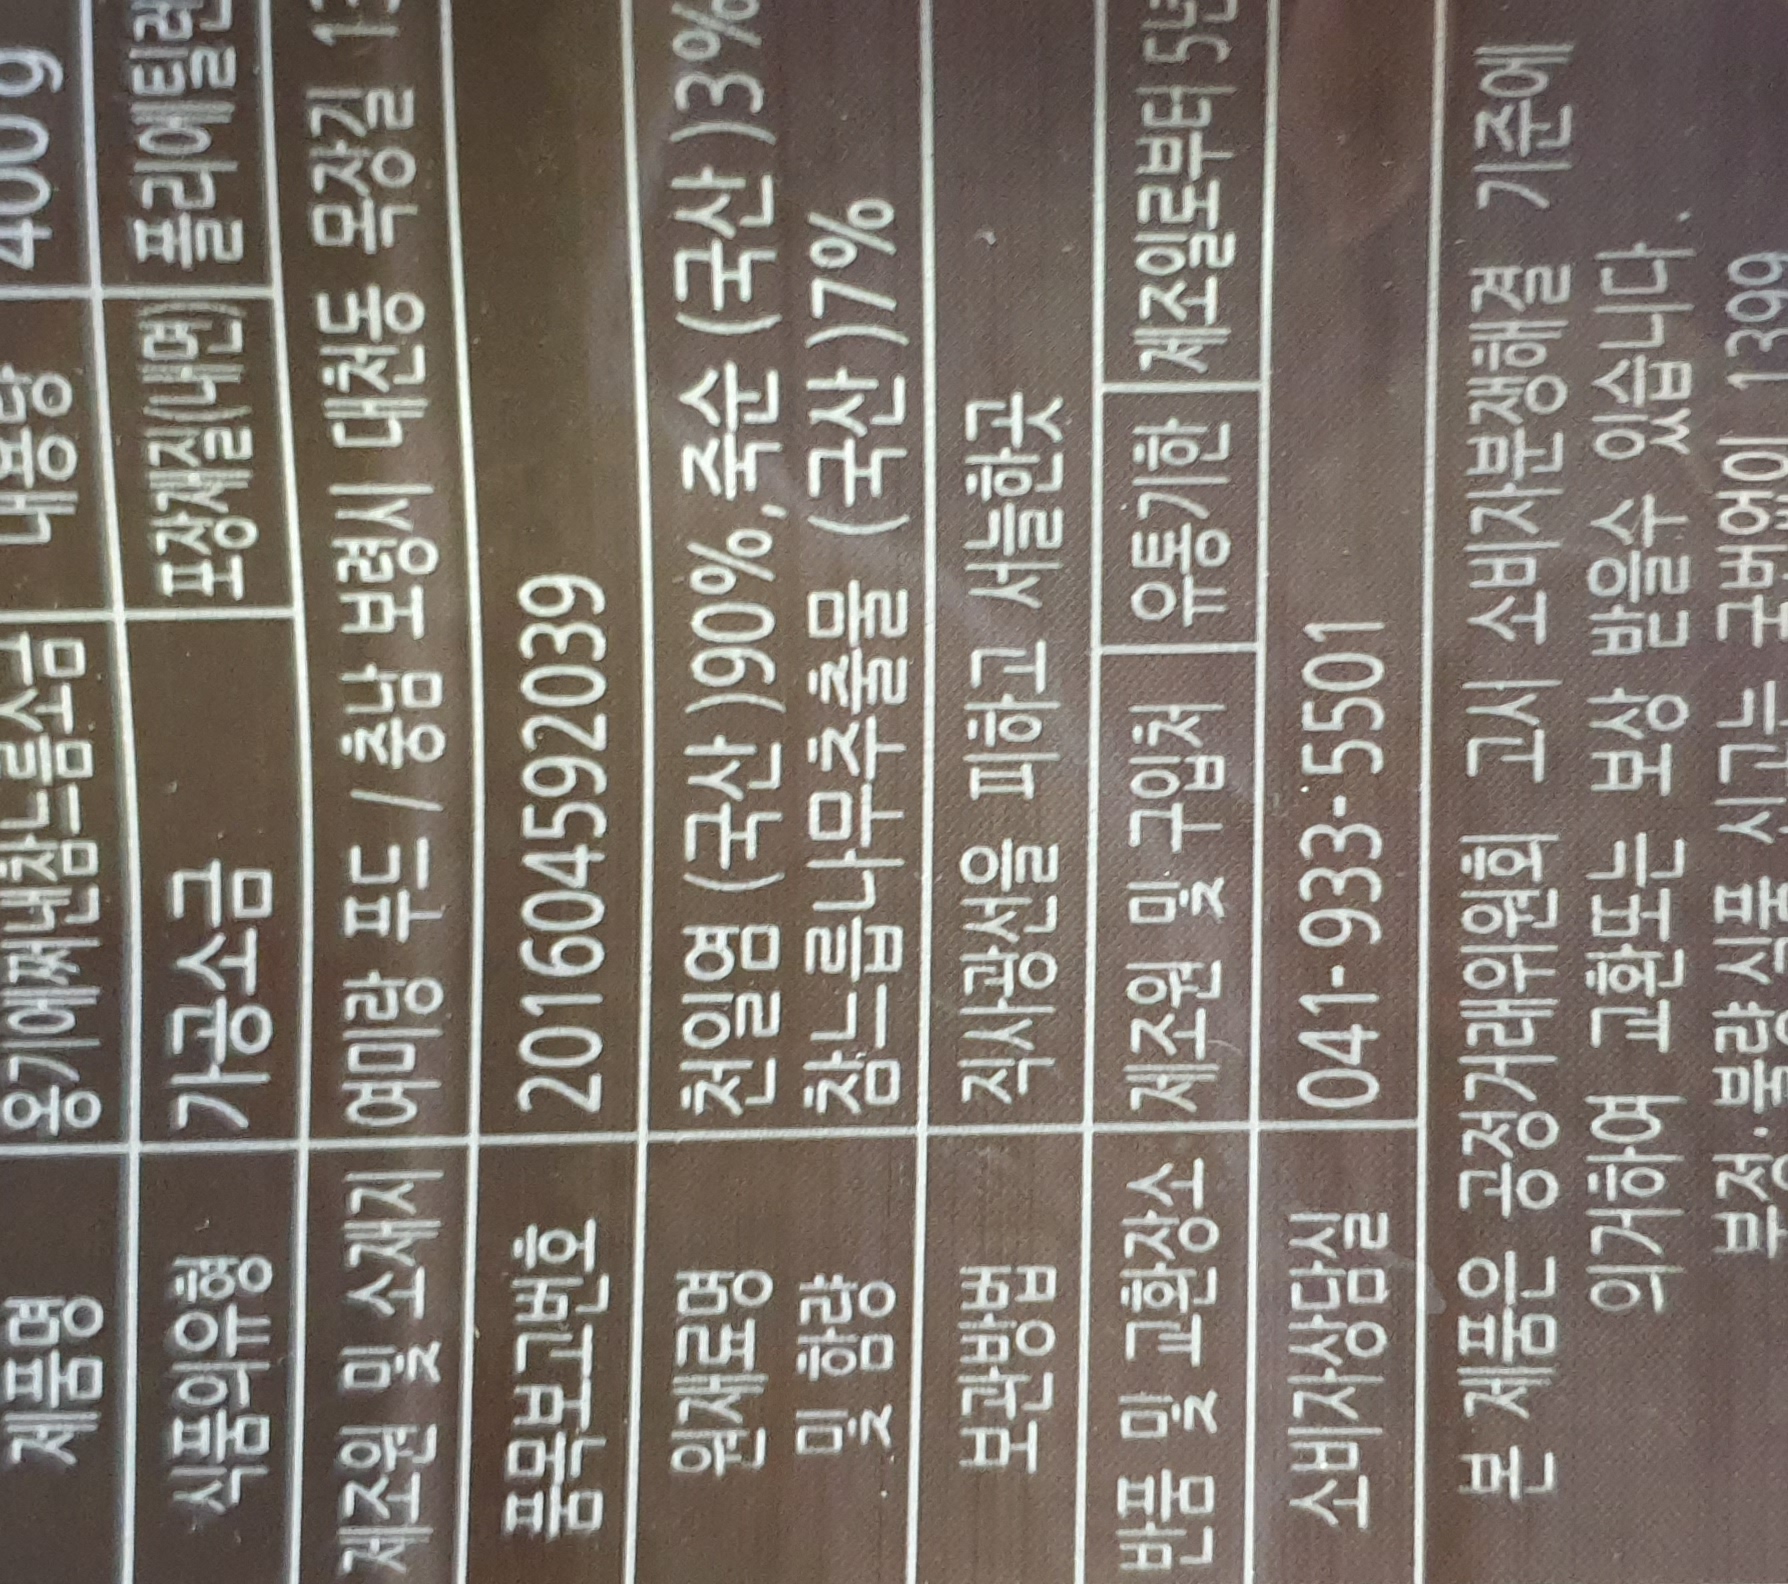 제품명 옹기에쪄낸참느릅소금 내용량 400g
식품의유형 가공소금 포장재질(내면) 폴리에틸렌
제조원 및 소재지 여미랑 푸드 / 충남 보령시 대천동 옥장길 13
품목보고번호 201604592039
원재료명 천일염 (국산)90%, 죽순 (국산)3%
및 함량 참느릅나무추출물 (국산)7%
보관방법 직사광선을 피하고 서늘한곳
반품 및 교환장소 제조원 및 구입처 유통기한 제조일로부터 5년
소비자상담실 041-933-5501
본 제품은 공정거래위원회 고시 소비자분쟁해결 기준에
의거하여 교환또는 보상 받을수 있습니다.
부정·불량식품 신고는 국번없이 1399